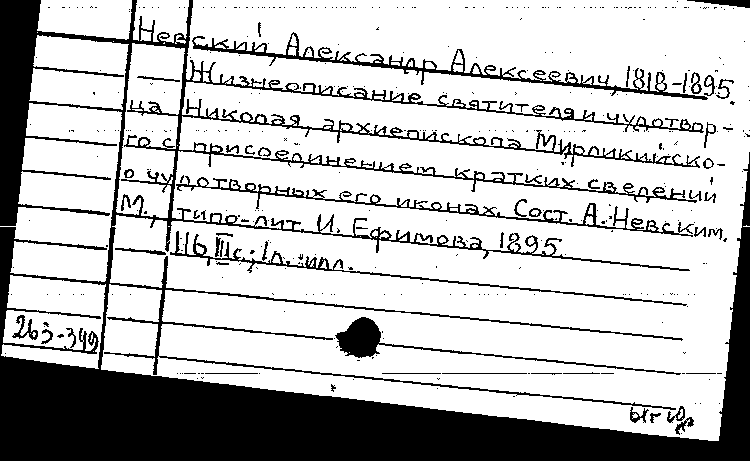 Невский, Александр Алексеевич, 1818-1895.
Жизнеописание святителя и чудотвор-
ца Николая, архиепископа Мирликийско-
го с присоединением кратких сведений
о чудотворных его иконах. Сост. А. Невским.
М., типо-лит. И. Ефимова, 1895.
116, III с.; 1 л. илл.
263-349